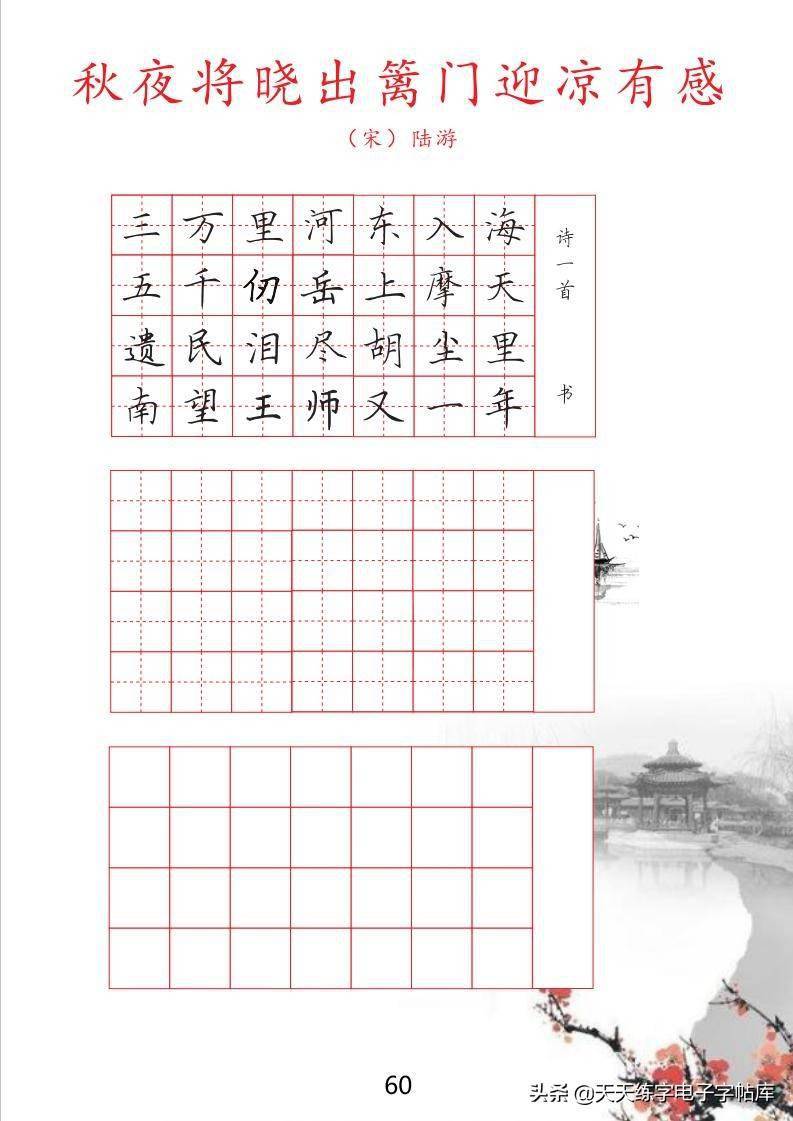 秋夜将晓出篱门迎凉有感
（宋）陆游
三万里河东入海
五千仞岳上摩天
遗民泪尽胡尘里
南望王师又一年
诗一首
书
60
头条 @天天练字电子字帖库